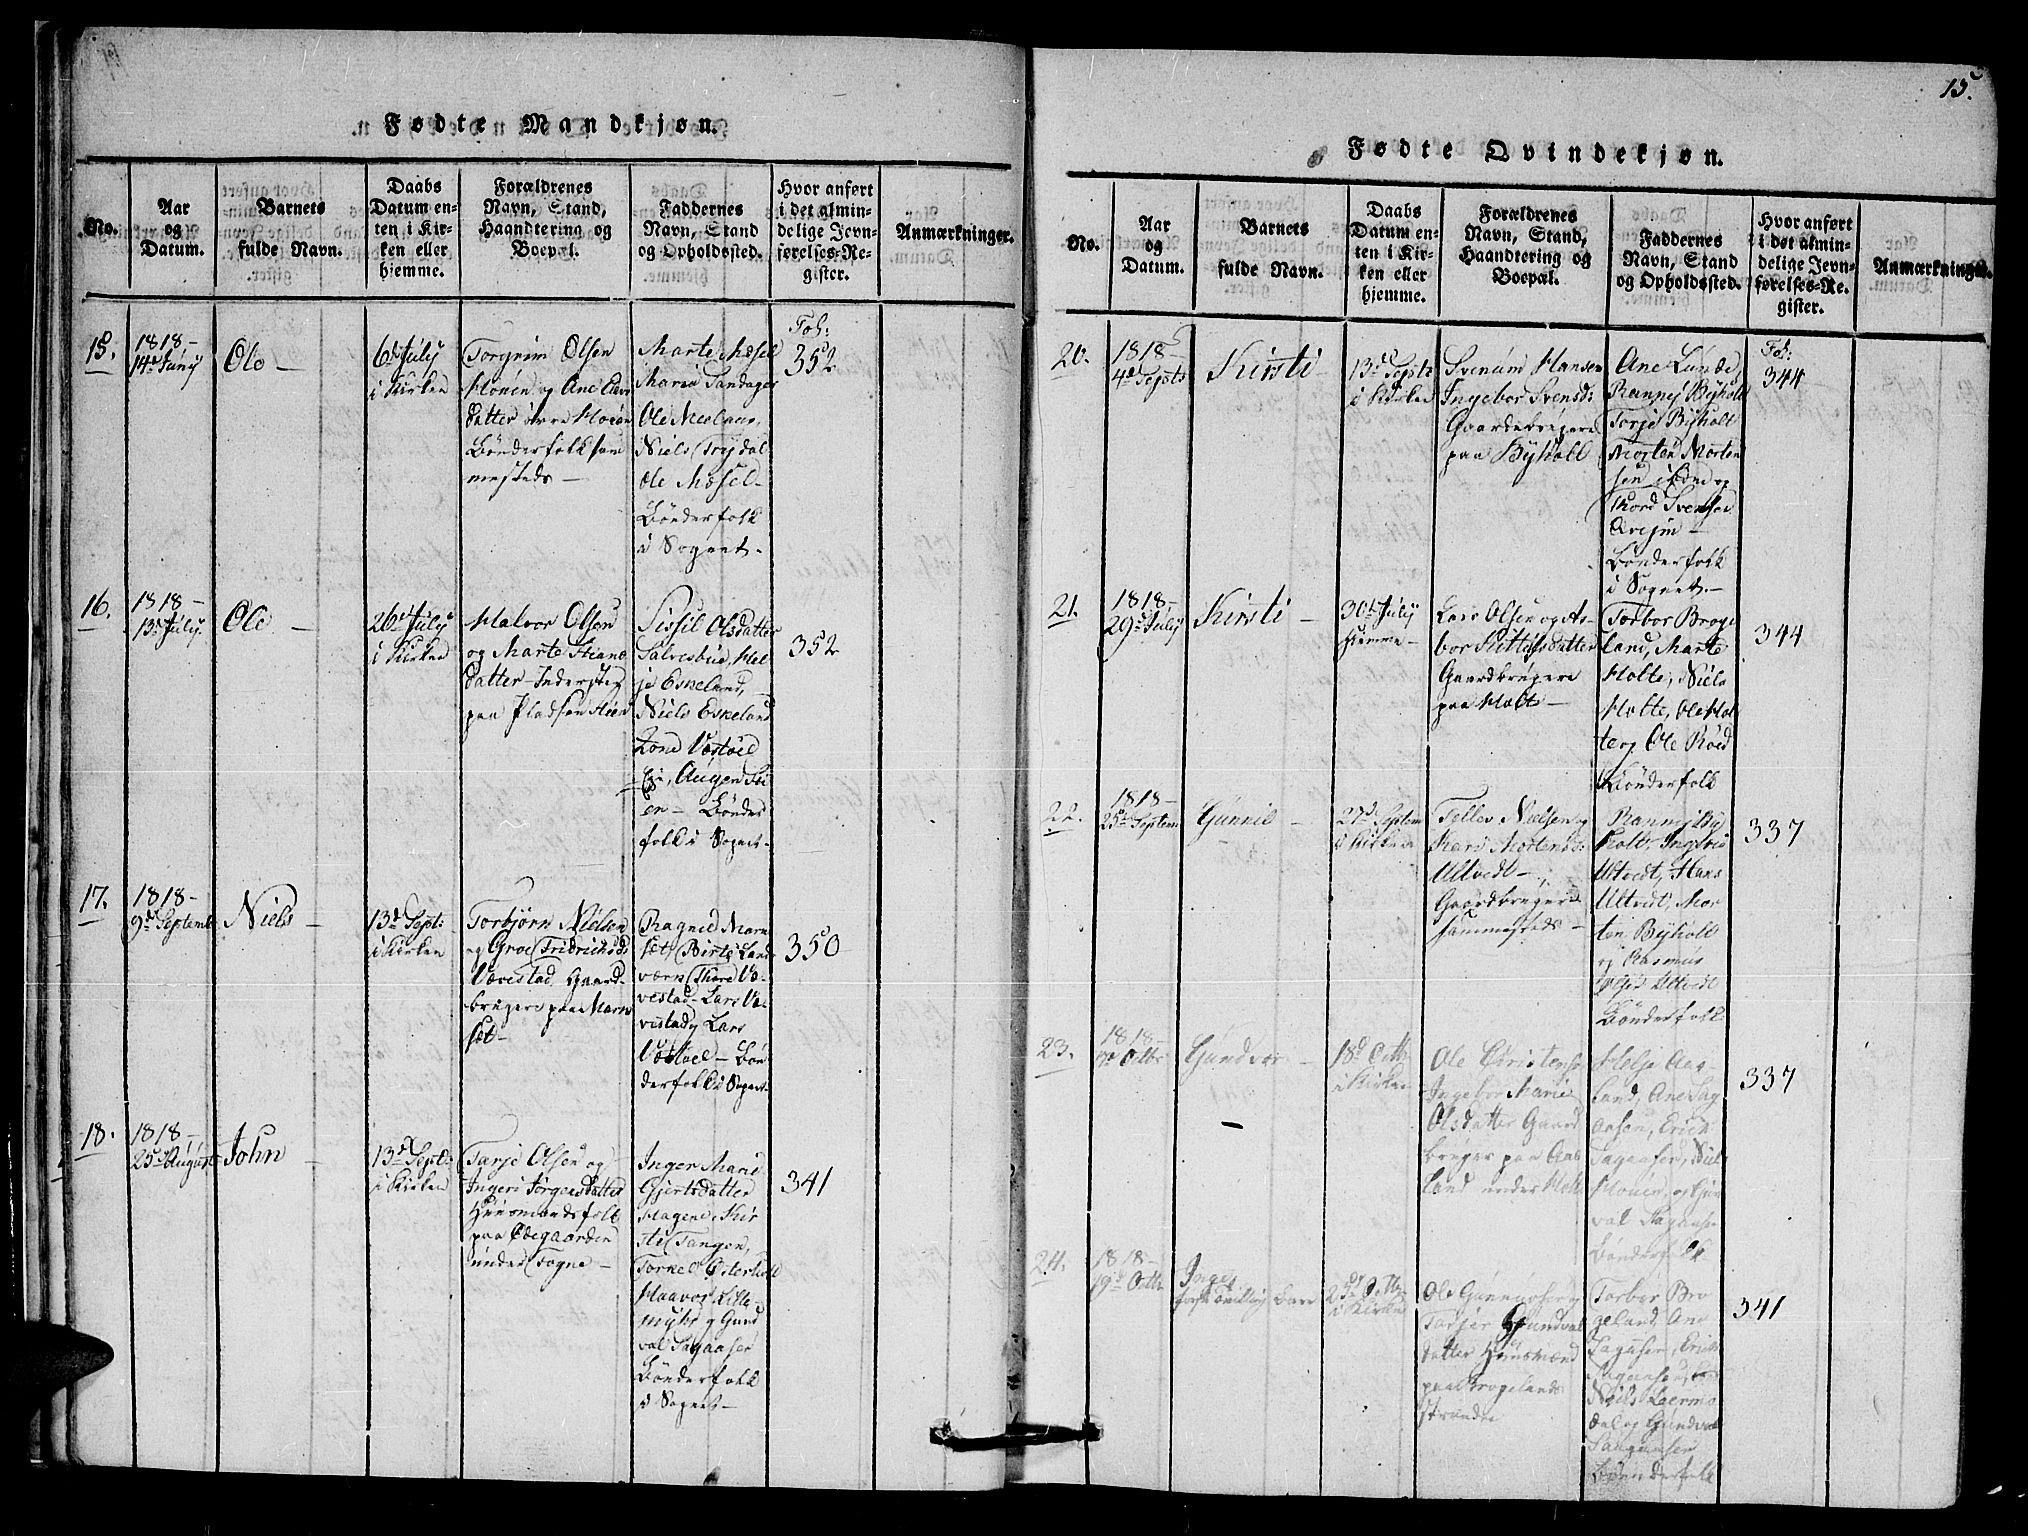 Fødte Mandkjøn.
No.
Aar
og
Datum.
Barnets
fulde Navn.
Daabs
Datum en-
ten i Kir-
ken eller
hjemme.
Forældrenes
Navn, Stand,
Haandtering og
Boepæl.
Faddernes
Navn, Stand
og Opholdssted.
Hvor anført
i det almin-
delige Jevn-
førelses-Re-
gister.
Anmærkninger.
15.
1818-
14d Juny
Ole -
6d July
i Kirken
Torgrim Olsen
Moien og Ane
datter øvre Moien
Bønderfolk sam
mesteds -
Marte Mæsel
Maria Sandager
Ole
Niels Trydal
Ole Mæsel-
Bønderfolk
i Sognet.
Fol:
352
16.
1818-
13d July.
Ole -
26d July
i Kirken
Halvor Olsen
og Marte
datter Inderster
paa Pladsen
Sissil Olsdatter
Salvesbue, Hel-
je Eskeland,
Niels Eskeland
Væstøel
Augen
en - Bønder
folk i Sognet.
352
17.
1818-
9d Septembr
Niels -
13d Sept:
i Kirken
Torbjørn Nielsen
og Groe Fridrichsd:
Værestad Gaard-
brugere paa
Ragnild
Birte Land
værn Thore Væ-
vestad Lars Væ-
vestad og Lars
Væstøel - Bøn
derfolk i Sognet-
350
18.
1818-
25d August
John -
13d Sept:
i Kirken
Tarje Olsen og
Ingeri Jørgensdatter
Huusmandsfolk
paa Ødegaarden
under Fogne -
Inger Marie
Gjertsdatter
Hagene, Kir
sti Tangen,
Torkel Østerholt
Haavor Lille-
myhr og Gund
val Sagaasen
Bønderfolk
i Sognet -
341
15.
Fødte Qvindekjøn.
No.
Aar
og
Datum.
Barnets
fulde Navn.
Daabs
Datum en-
ten i Kir-
ken eller
hjemme.
Forældrenes
Navn, Stand,
Haandtering og
Boepæl.
Faddernes
Navn, Stand
og Opholdssted.
Hvor anført
i det almin-
delige Jevn-
førelses-Re-
gister.
Anmærkninger.
20.
1818-
4d Septb
Kirsti
13d Septb
i Kirken
Svenum Hansen
Ingebor Svensd:
Gaardebrugere
paa Byholt
Ane Lunde,
Ranney Byholt
Torje Byholt
Morten Morten
sen og
Thord Svensen
-
Bønderfolk
i Sognet.-
Fol:
344
21.
1818-
29d July
Kirsti -
30d July
hjemme -
Lars Olsen og As-
bor datter
Gaardbrugere
paa Holt -
Torbor Broge
land, Marte
Holte, Niels
Holte, Ole Hol
te og Ole Røed
Bønderfolk
344
22.
1818-
25d Septem
Gunnil -
27d Septem
i Kirken
Tellev Nielsen og
Kari Mortensd:
Ultvedt -
Gaardbrugere
sammesteds -
Ranney By
holt, Ingebor
Ultvedt, Hans
Ultvedt, Mor
ten Byholt
og Rasmus
Ultvedt
Bønderfolk
337
23.
1818-
Octbr
Gundvor -
18d Octb
i Kirken
Ole Christens:
Ingebor Marie
Olsdatter Gaard
bruger paa Aas
land under Holt
Helje Aas-
land, Ane Sag
aasen, Erich
Sagaasen, Niels
Moien, og Gun
val Sagaasen
Bønderfolk
337
24.
1818-
19d Octb
Inger
første Tvilling Barn
25d Octb
i Kirken
Ole Gunnersen og
Tarjer Gundval
datter Huusmænd
paa Brogelands
strandee
Torbor Bro
geland, Ane
Sagaasen, Erich
Sagaasen,
Niels
dal og Gundval
Sagaasen
Bønderfolk
341